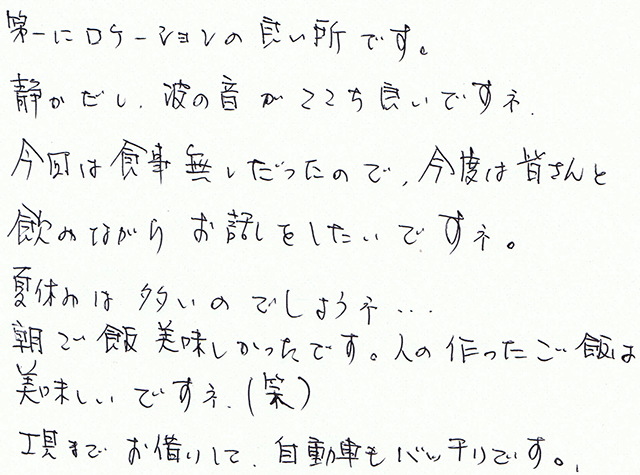 第一にロケーションの良い所です。
静かだし、波の音がここち良いですネ.
今回は食事無しだったので、今度は皆さんと
飲みながらお話しをしたいですネ。
夏休みは多いのでしょうネ…
朝ご飯美味しかったです。人の作ったご飯は
美味しいですネ.(笑)
工具までお借りして、自動車もバッチリです。